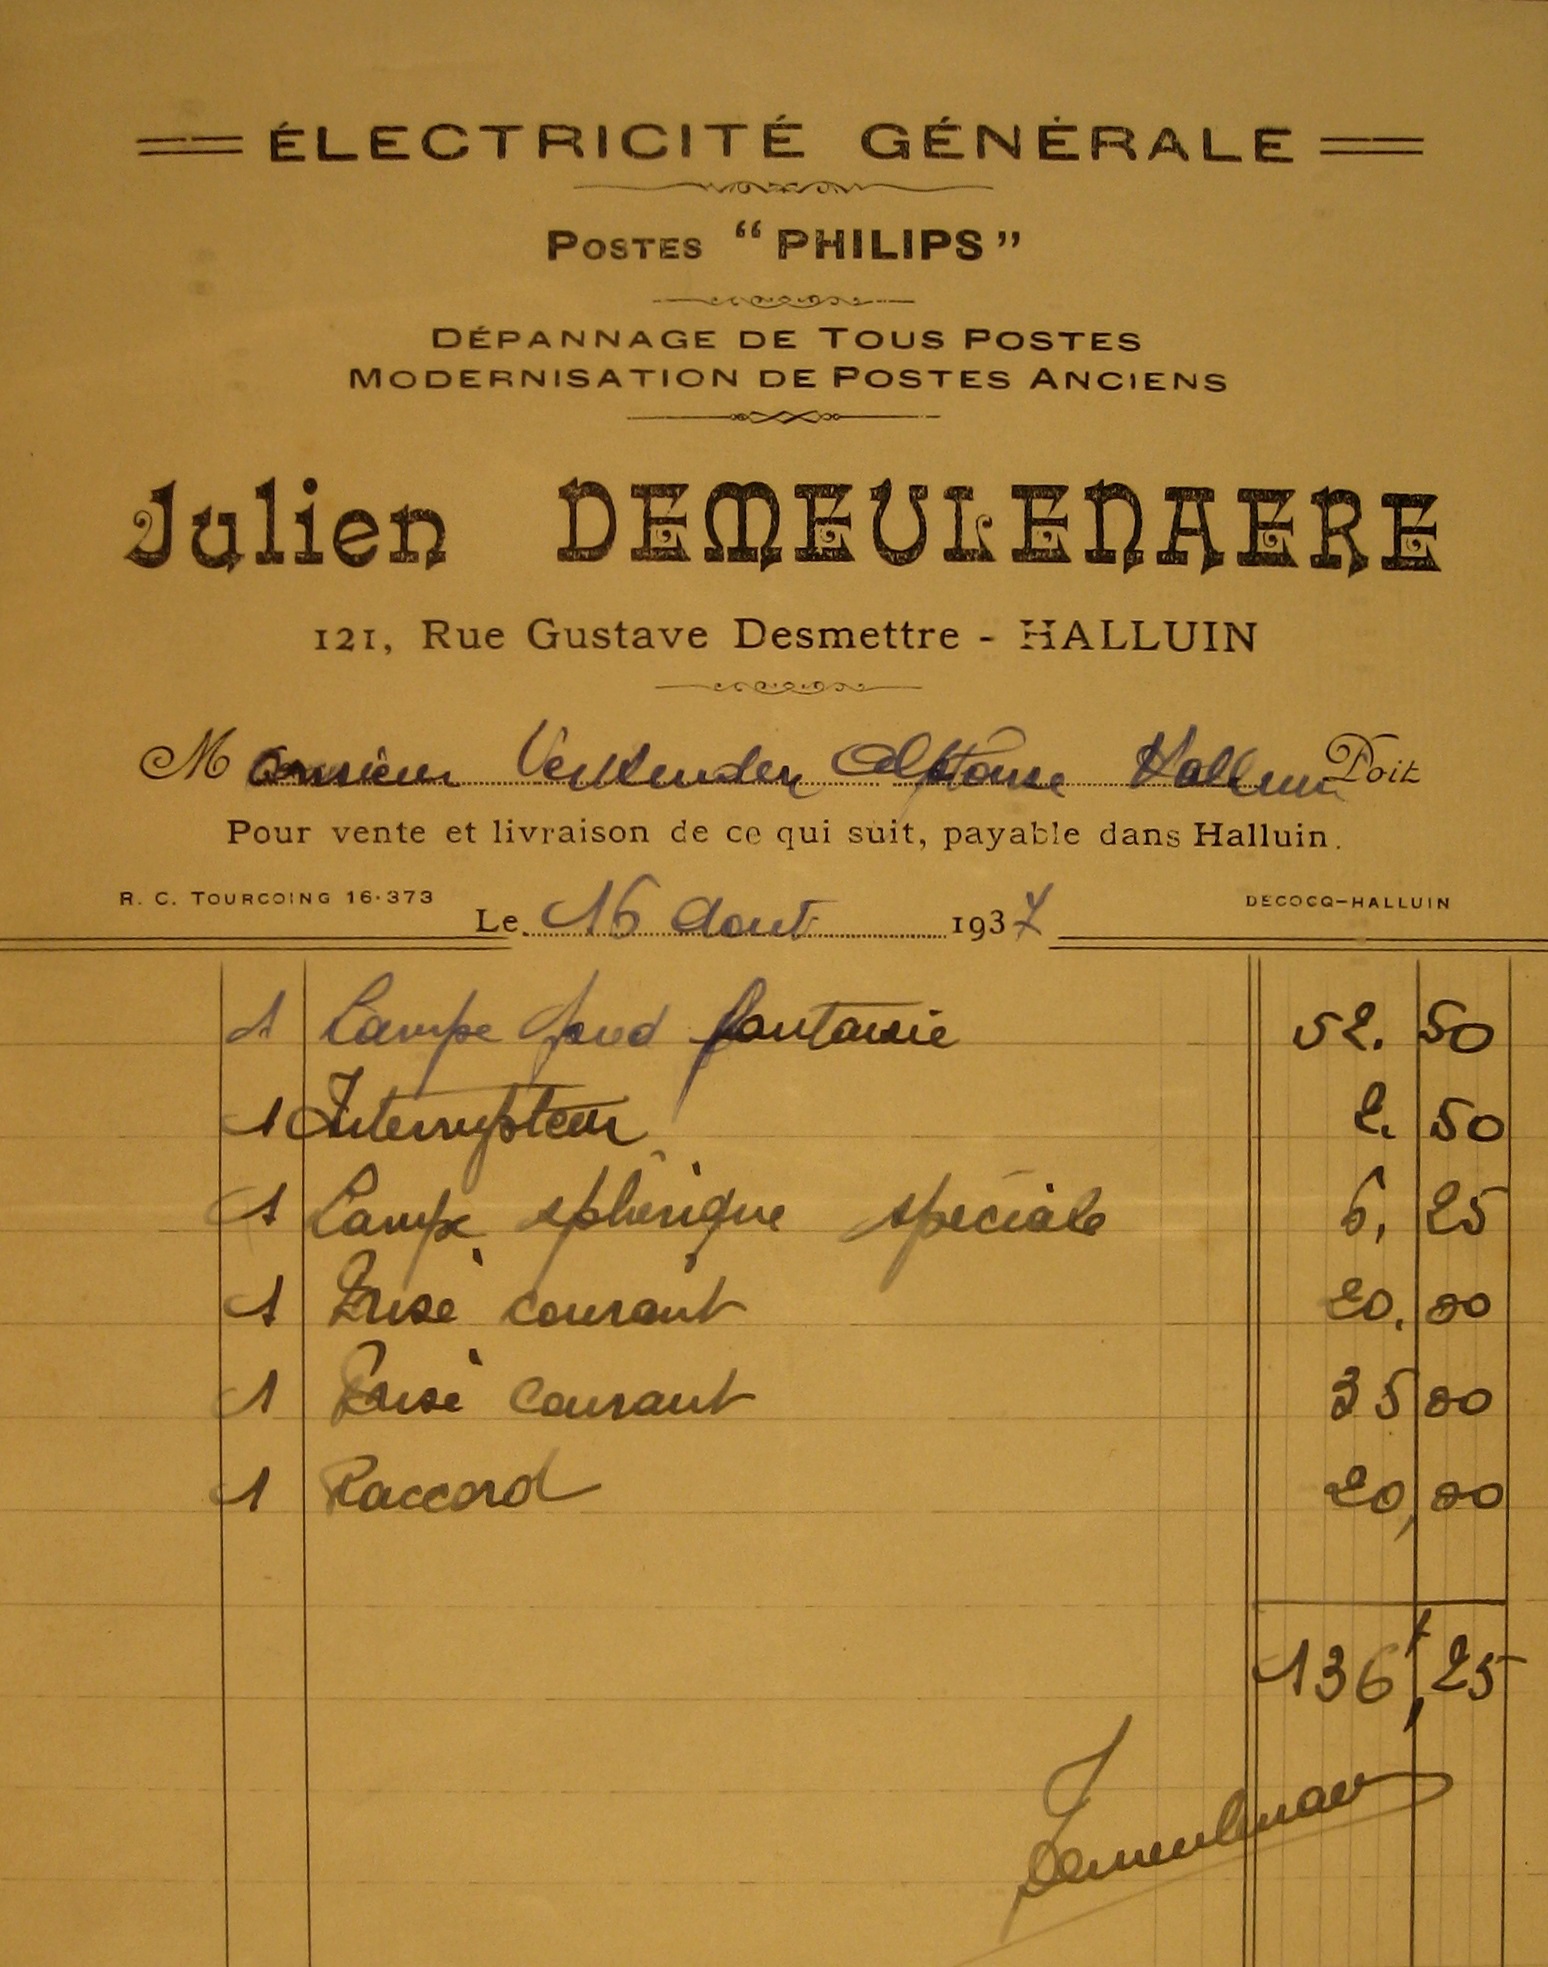 ÉLECTRICITÉ GÉNÉRALE
POSTES "PHILIPS"
DÉPANNAGE DE TOUS POSTES
MODERNISATION DE POSTES ANCIENS
Julien DEMEULENAERE
121, Rue Gustave Desmettre - HALLUIN
Monsieur Alphonse Halluin Doit
Pour vente et livraison de ce qui suit, payable dans Halluin.
R. C. TOURCOING 16.373 DECOCQ-HALLUIN
Le 16 Aout 1937
1 Lampe fantaisie 52. 50
1 Interrupteur 2. 50
1 Lampe sphérique spéciale 6, 25
1 Prise courant 20, 00
1 Prise courant 35 00
1 Raccord 20, 00
136f, 25
J Demeulenaere